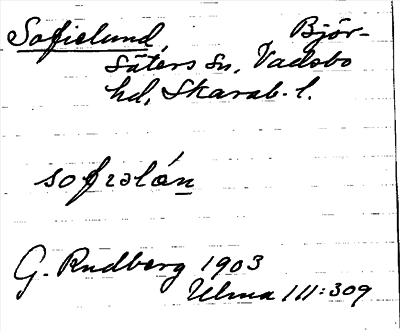 Sofielund, Björ-
säters sn, Vadsbo
hd, Skarab. l.
sofɩəlán
G. Rudberg 1903
Ulma 111:309